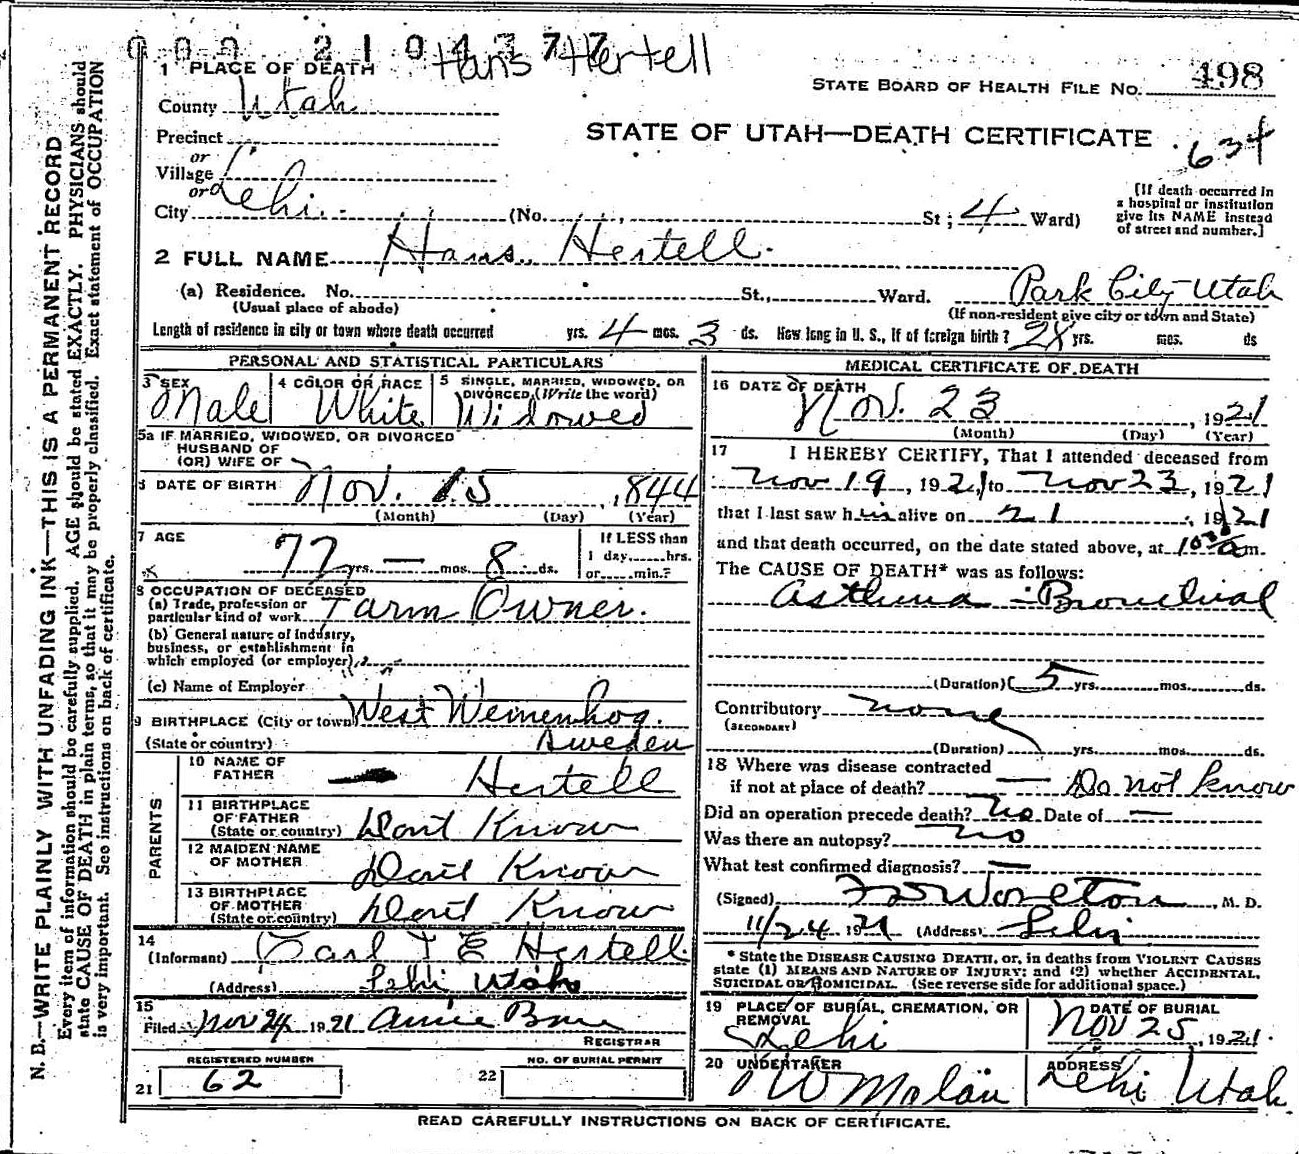 000 210437 7
Hans Hertell
1 PLACE OF DEATH
STATE BOARD OF HEALTH FILE No. 498
County Utah
STATE OF UTAH—DEATH CERTIFICATE
634
Precinct
or
Village
or
City Lehi. (No. St; 4 Ward)
[If death occurred in
a hospital or institution
give its NAME instead
of street and number.]
2 FULL NAME Hans. Hertell.
(a) Residence. No. St., Ward. Park City Utah
(Usual place of abode) (If non-resident give city or town and State)
Length of residence in city or town where death occurred yrs. 4 mos. 3 ds. How long in U. S., if of foreign birth? 28 yrs. mos. ds
PERSONAL AND STATISTICAL PARTICULARS
3 SEX Male
4 COLOR OR RACE White
5 SINGLE, MARRIED, WIDOWED, OR
DIVORCED (Write the word)
Widowed
5a IF MARRIED, WIDOWED, OR DIVORCED
HUSBAND OF
(OR) WIFE OF
6 DATE OF BIRTH Nov. 15, 1844
(Month) (Day) (Year)
7 AGE 77 yrs. — mos. 8 ds.
If LESS than
1 day, hrs.
or min.?
8 OCCUPATION OF DECEASED
(a) Trade, profession or
particular kind of work Farm Owner.
(b) General nature of industry,
business, or establishment in
which employed (or employer)
(c) Name of Employer
9 BIRTHPLACE (City or town) West Wemenhog.
(State or country) Sweden
PARENTS
10 NAME OF
FATHER Hertell
11 BIRTHPLACE
OF FATHER
(State or country) Dont Know
12 MAIDEN NAME
OF MOTHER Dont Know
13 BIRTHPLACE
OF MOTHER
(State or country) Dont Know
14
(Informant) Carl T E Hertell.
(Address) Lehi Utah
15
Filed Nov 24 1921
REGISTRAR
REGISTERED NUMBER
21 62
NO. OF BURIAL PERMIT
22
MEDICAL CERTIFICATE OF DEATH
16 DATE OF DEATH
Nov. 23, 1921
(Month) (Day) (Year)
17 I HEREBY CERTIFY, That I attended deceased from
Nov 19, 1921, to Nov 23, 1921
that I last saw him alive on 21, 1921
and that death occurred, on the date stated above, at 10 30 a m.
The CAUSE OF DEATH* was as follows:
Asthma - Bronchial
(Duration) 5 yrs. mos. ds.
Contributory none
(SECONDARY)
(Duration) yrs. mos. ds.
18 Where was disease contracted
if not at place of death? — Do not know
Did an operation precede death? No Date of —
Was there an autopsy? no
What test confirmed diagnosis? —
(Signed) M. D.
11/24 1921 (Address) Lehi
* State the DISEASE CAUSING DEATH, or, in deaths from VIOLENT CAUSES
state (1) MEANS AND NATURE OF INJURY; and (2) whether ACCIDENTAL,
SUICIDAL OR HOMICIDAL. (See reverse side for additional space.)
19 PLACE OF BURIAL, CREMATION, OR
REMOVAL
Lehi
DATE OF BURIAL
Nov 25, 1921.
20 UNDERTAKER
ADDRESS
Lehi Utah
READ CAREFULLY INSTRUCTIONS ON BACK OF CERTIFICATE.
N. B.—WRITE PLAINLY WITH UNFADING INK—THIS IS A PERMANENT RECORD
Every item of information should be carefully supplied. AGE should be stated EXACTLY. PHYSICIANS should
state CAUSE OF DEATH in plain terms, so that it may be properly classified. Exact statement of OCCUPATION
is very important. See instructions on back of certificate.